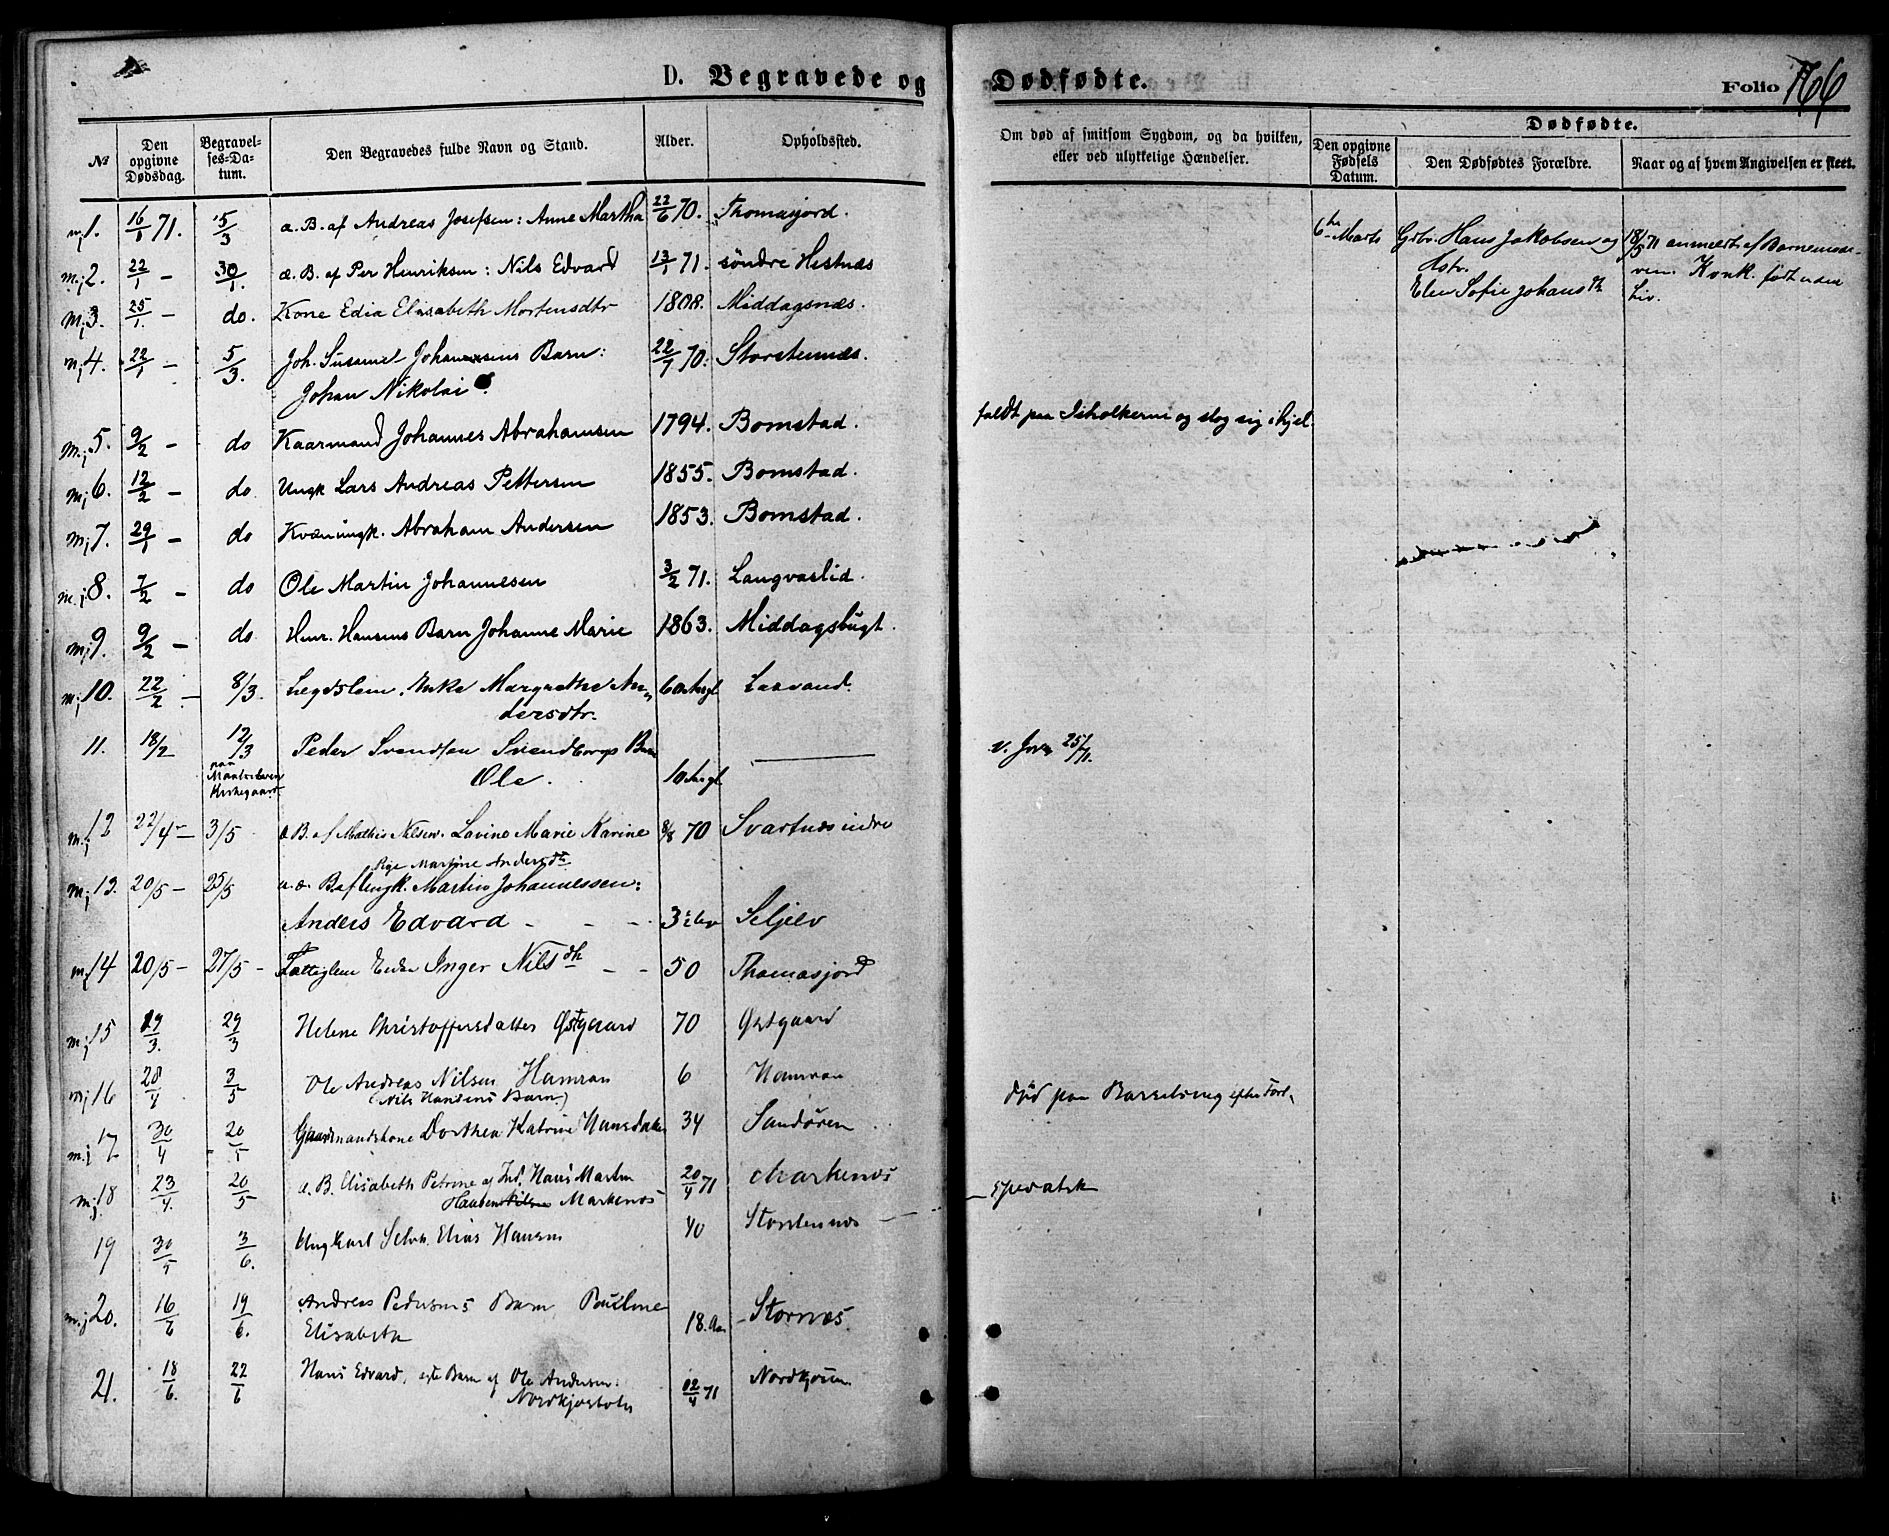 D. Begravede og Dødfødte.
Folio 166
№ Den opgivne Dødsdag. Begravelses-Datum. Den Begravedes fulde Navn og Stand. Alder. Opholdssted.
Om død af smitsom Sygdom, og da hvilken, eller ved ulykkelige Hændelser.
Dødfødte.
Den opgivne Fødsels Datum. Den Dødfødtes Forældre. Naar og af hvem Angivelsen er skeet.
m; 1. 16/1 71. 5/3 æ. B. af Andreas Josefsen: Anne Martha 22/6 70. Thomasjord.
6te Marts Gdbr. Hans Jakobsen og 18/3 71 anmeldt af Barnemode-
Hstr. veren. Konk. født uden
Elen Sofie Johansdtr Liv.
m; 2. 22/1 - 30/1. æ. B. af Per Henriksen: Nils Edvard 13/1 71. søndre Hestnæs
m; 3. 25/1. - do. Kone Edia Elisabeth Mortensdtr 1808. Middagsnæs.
m; 4. 22/1 - 5/3. Joh. Susanne Johannesens Barn: 22/7 70. Storstennæs.
Johan Nikolai
m; 5. 9/2 - do Kaarmand Johannes Abrahamsen 1794. Bomstad. faldt paa Isholkerne og slog sig ihjel.
m; 6. 12/2 - do. Ungk Lars Andreas Pettersen 1855. Bomstad.
m; 7. 29/1 - do Kvænungk. Abraham Andersen 1853. Bomstad.
m; 8. 7/2 - do Ole Martin Johannesen 3/2 71. Langvaslid.
m; 9. 9/2 - do. Henr. Hansens Barn Johanne Marie 1863. Middagsbugt.
m; 10. 22/2 - 8/3. Legdslem. Inke Margrethe An-
dersdtr. 60 Aargl Laxvand.
11. 18/2 12/3 Peder Svendsen Svendborgs Barn
paa Maalselven Kirkegaard Ole. 10 Aargl v. Jor. 25/71.
m; 12 22/4 - 3/5 æ B. af Mathis Nilsen. Lavine Marie Karine 8/8 70 Svartnæs indre
Pige Martine Andersdtr
m; 13. 20/5 - 25/5 u.æ. B af Ungk. Martin Johannessen:
Anders Edvard - - - Seljelv
m; 14 20/5 - 27/5 - Fattiglem Enke Inger Nilsdtr - - 50 Thomasjord
m; 15 29/3. 29/3 Helene Christoffersdatter Østgaard 70 Østgaard
m; 16 28/4 3/5 Ole Andreas Nilsen Hamran 6 Hamran
(Nils Hansens Barn)
m; 17 30/4 20/5 Gaardmandskone Dorthea Katrine Hansdatter 34 Sandøren død paa Barselseng efter Forl.
m; 18 23/4. 20/5 æ. B. Elisabeth Petrine af Ind. Hans Martin 20/4 71 Markenæs - spædatsk
Haagensen Markenæs
19 30/5 3/6. Ungkarl Selvh. Elias Hansen 40 Storstennæs
m; 20. 16/6 19/6. Andreas Pedersens Barn Pauline
Elisabeth 18. Aar Stornæs.
21. 18/6. 22/6 Hans Edvard, ægte Barn af Ole Andersen: 12/4 71 Nordkjosen
Nordkjosbotn